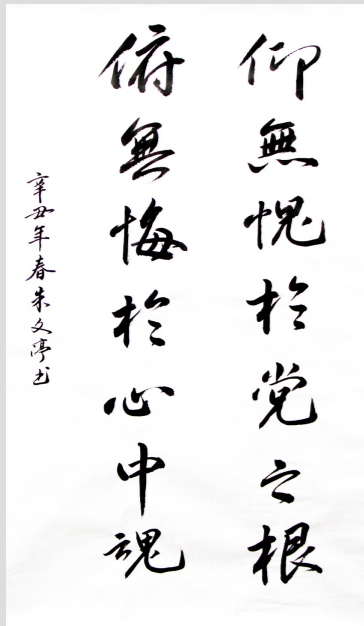 仰無愧於党之根
俯無悔於心中魂
辛丑年春朱文亭书